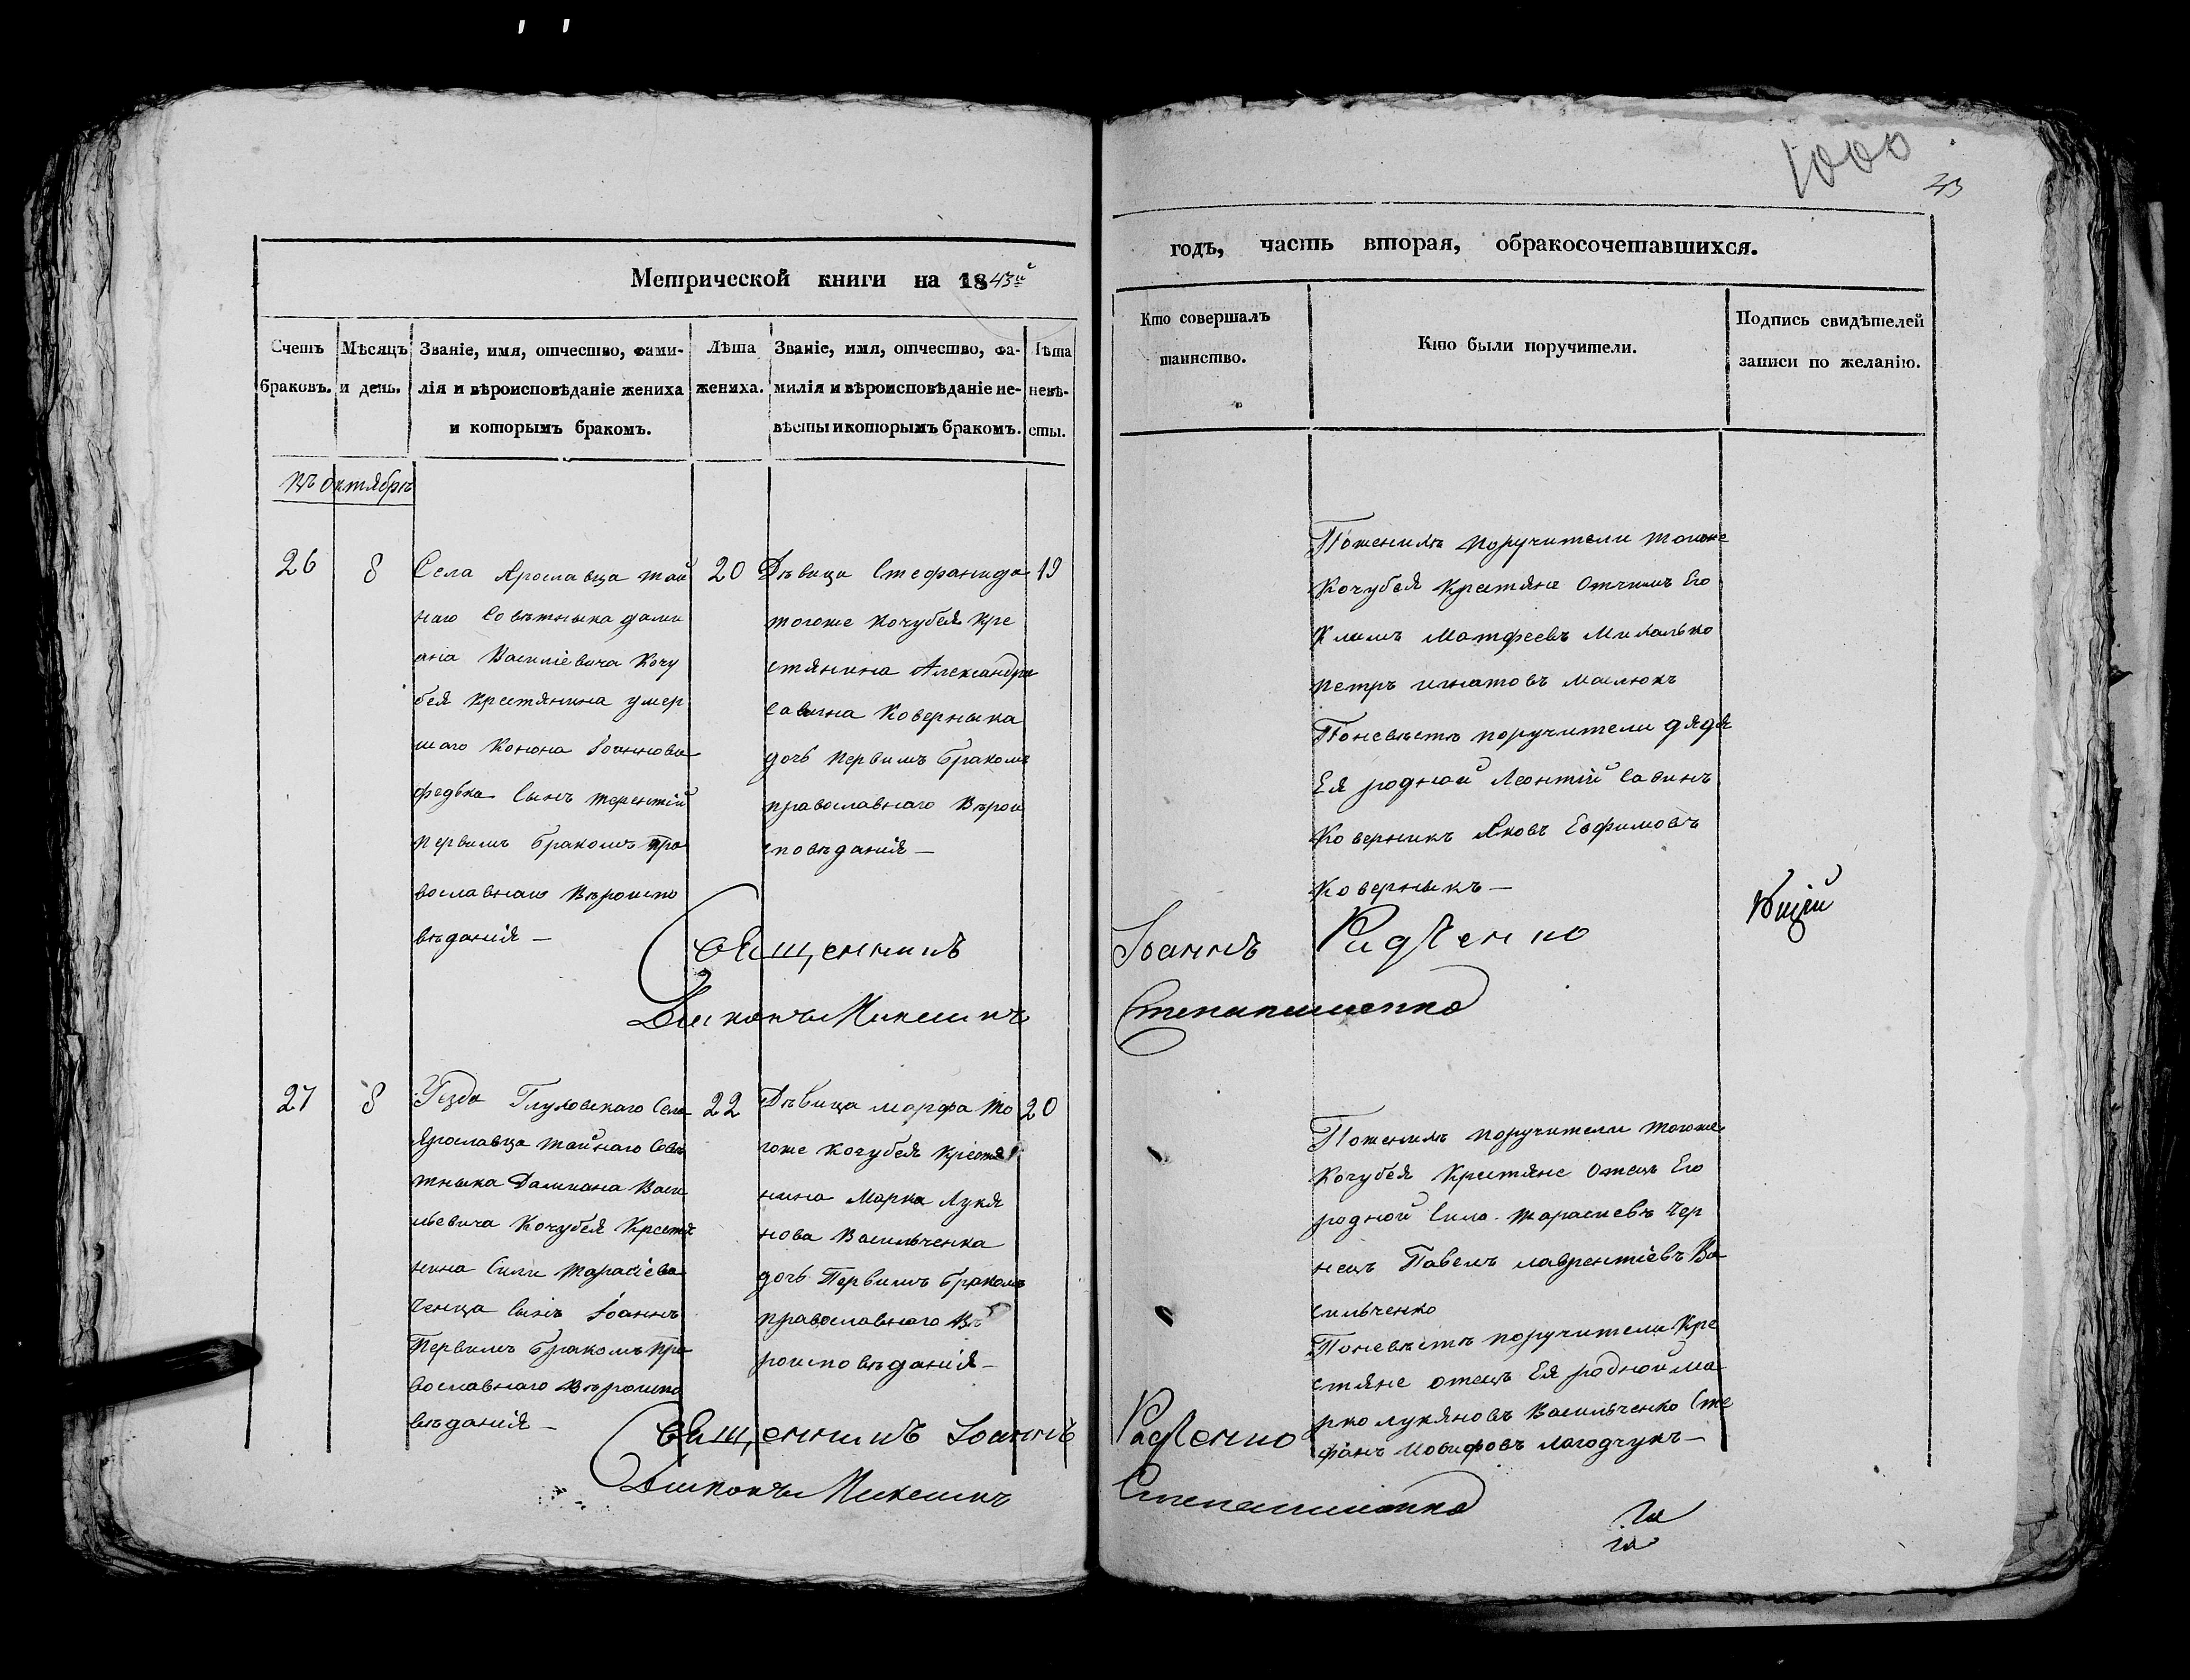 1000
43
Метрической книги на 1843й
годъ, часть вторая, обракосочетавшихся.
Счетъ браковъ.
Мѣсяцъ и день.
Званіе, имя, отчество, фами-
лія и вѣроисповѣданіе жениха
и которымъ бракомъ.
Лѣта
жениха.
Званіе, имя, отчество, фа-
милія и вѣроисповѣданіе не-
вѣсты и которымъ бракомъ.
Лѣта
невѣ-
сты.
Кто совершалъ
таинство.
Кто были поручители.
Подпись свидѣтелей
записи по желанію.
въ октябрѣ
26
8
Села Ярославца тай
наго Совѣтныка дами
ана Василіевича Кочу
бея крестянина умер
шаго Конона Іоаннова
федька Сынъ терентій
первимъ бракомъ пра
вославнаго Вѣроиспо
вѣданія —
20
Дѣвица Стефанида
тогоже Кочубея кре
стянина Александра
Савина Коверныка
дочь первимъ бракомъ
православнаго Вѣрои
сповѣданія —
19
Поженихѣ поручители тогоже
Кочубея крестяне Отчимъ Его
Климъ Матфеевъ Михалько
петръ игнатовъ маслюкъ
Поневѣстѣ поручители дядя
Ея родной Леонтій Савинъ
Коверникъ Яковъ Евфимовъ
Коверныкъ —
Священникъ Іоаннъ Радченко
Дьяконъ Микешинъ Степаненко
27
8
Уѣзда Глуховскаго Села
Ярославца тайнаго Совѣ
тныка Дамиана Васи
льевича Кочубея Крестя
нина Сили тарасіева
Ченца Сынъ Іоаннъ
Первимъ бракомъ пра
вославнаго Вѣроиспо
вѣданія —
22
Дѣвица марфа то
гоже кочубея крестя
нина Марка Лукя
нова Васильченка
дочь Первимъ бракомъ
православнаго Вѣ
роисповѣданія —
20
Поженихѣ поручители тогоже
Кочубея Крестяне Отецъ Его
родной Сила тарасиевъ Чер
нецъ Павелъ лаврентіевъ Ва
сильченко
Поневѣстѣ поручители Кре
стяне отецъ Ея родной ма
рко лукяновъ Васильченко Сте
фанъ Иосифовъ лагодчукъ —
Священникъ Іоаннъ Радченко
Дьяконъ Микешинъ